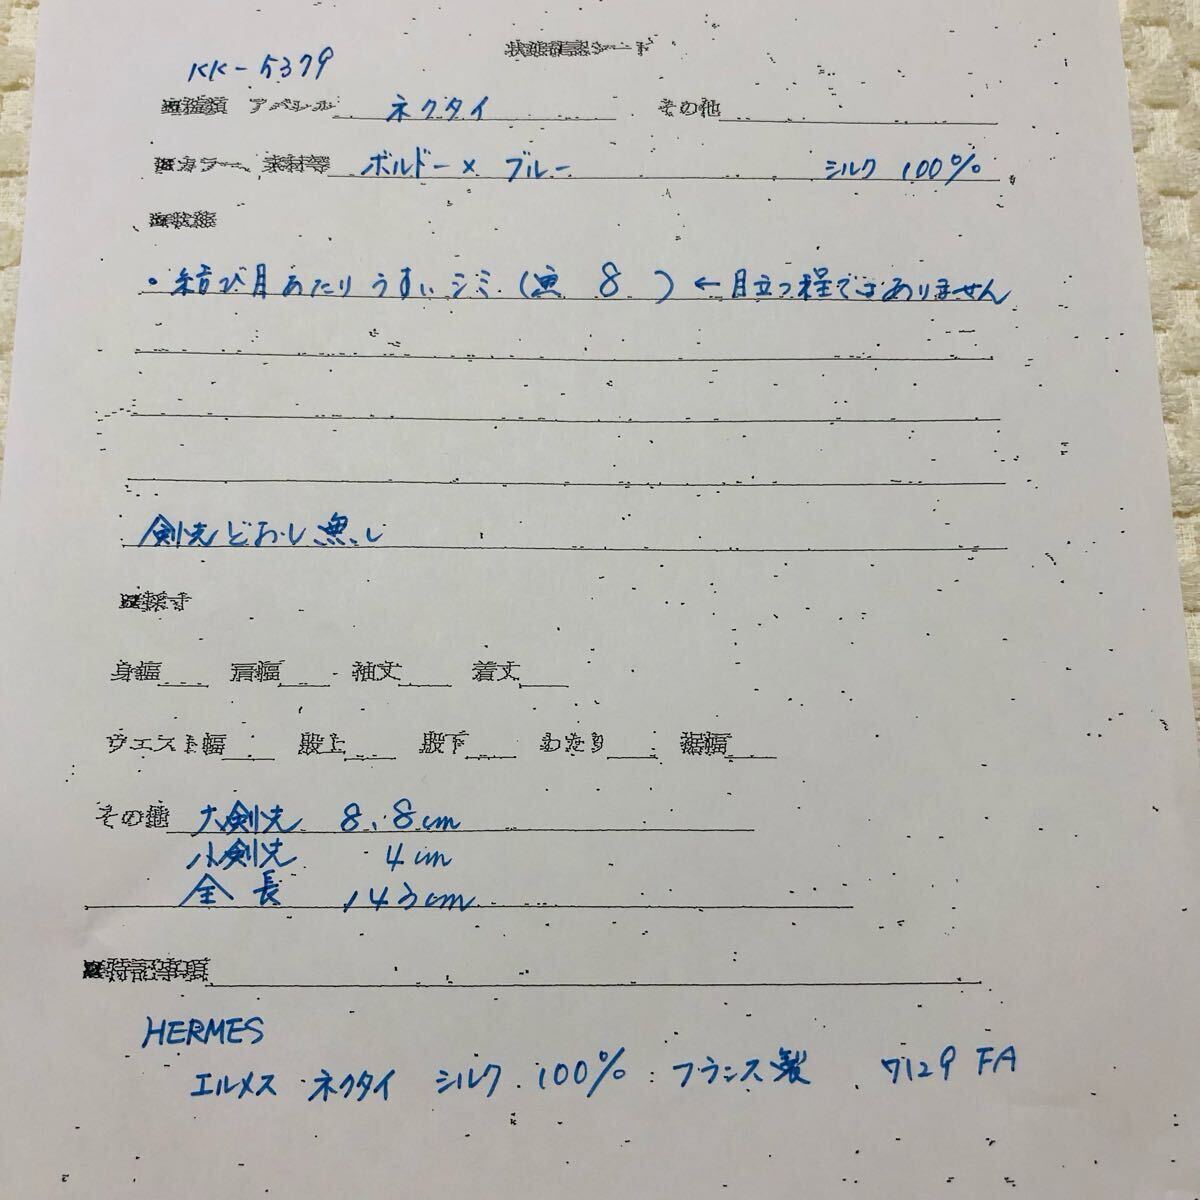 状態確認シート
KK-5379
種類 アパレル ネクタイ その他
カラー、素材等 ボルドー × ブルー シルク 100%
状態
・結び目あたりうすいシミ (点 8 ) ← 目立つ程ではありません
剣先どおし無し
採寸
身幅 肩幅 袖丈 着丈
ウエスト幅 股上 股下 わたり 裾幅
その他 大剣先 8.8cm
小剣先 4cm
全長 143cm
特記事項
HERMES
エルメス ネクタイ シルク 100% フランス製 7129 FA